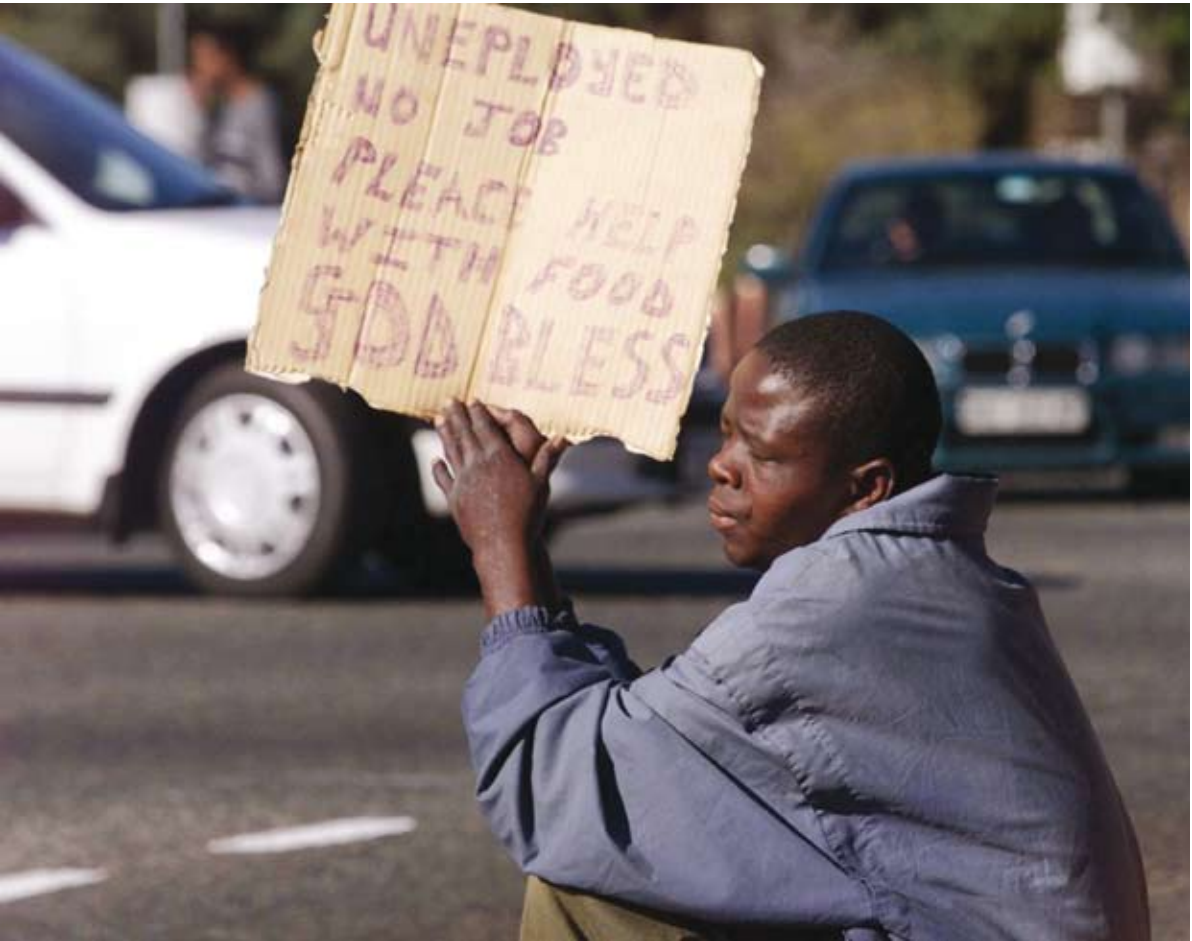 UNEPLOYED
NO JOB
PLEACE HELP
WITH FOOD
GOD BLESS